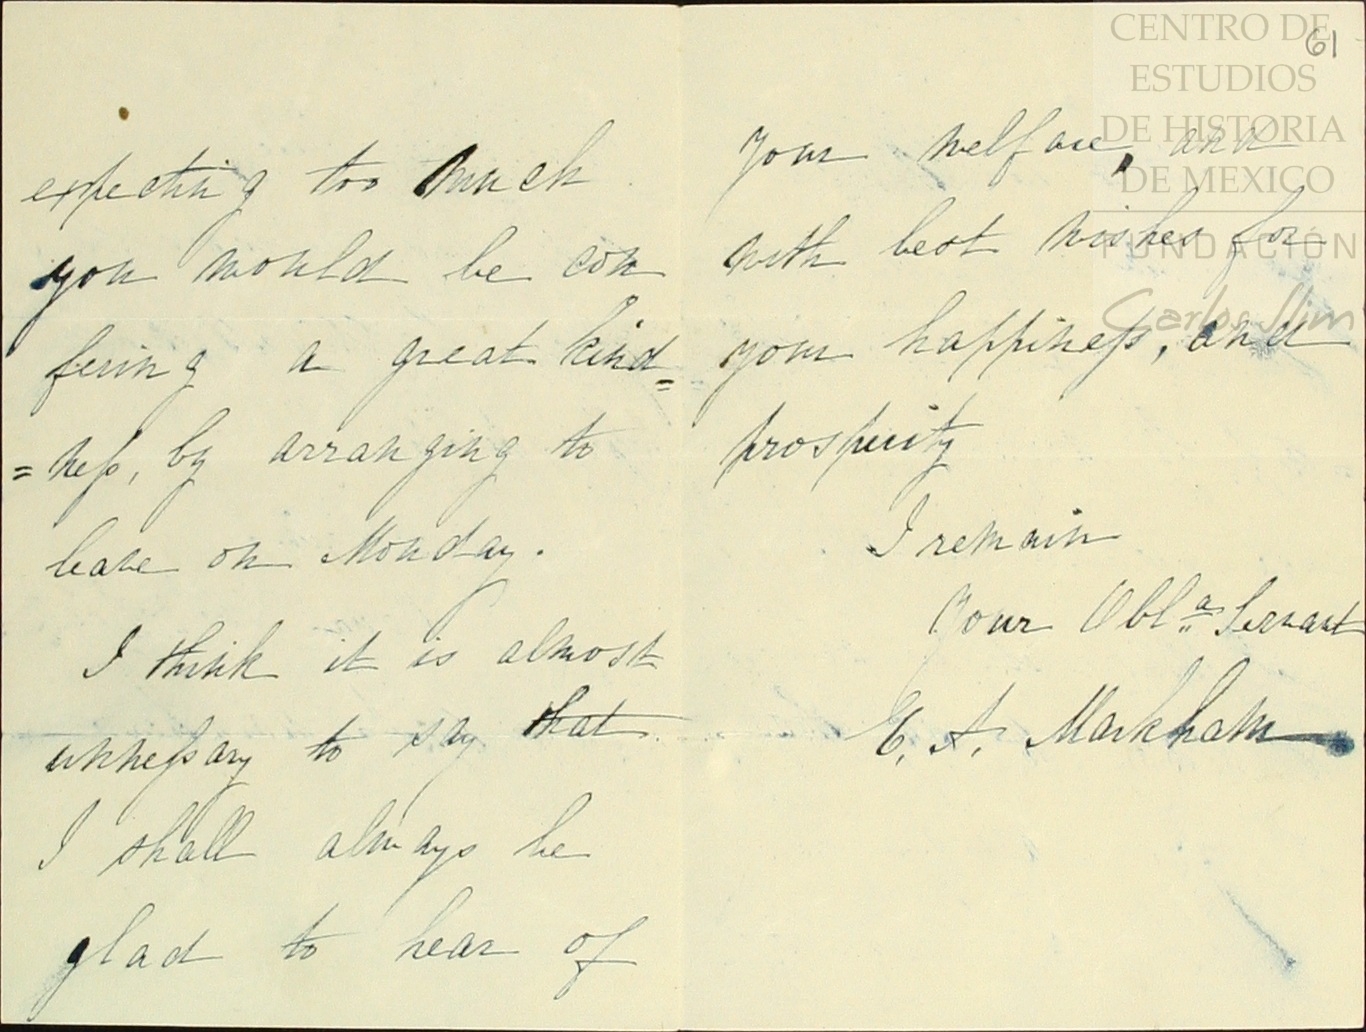 expecting too much
you would be con
fering a great kind=
=neſs, by arranging to
leave on Monday.
I think it is almost
unneſsary to say that
I shall always be
glad to hear of
61
your welfare, and
with best wishes for
your happineſs, and
prosperity
I remain
Your Obl^d Servant
E. A. Markham
CENTRO DE
ESTUDIOS
DE HISTORIA
DE MEXICO
FUNDACIÓN
Carlos Slim